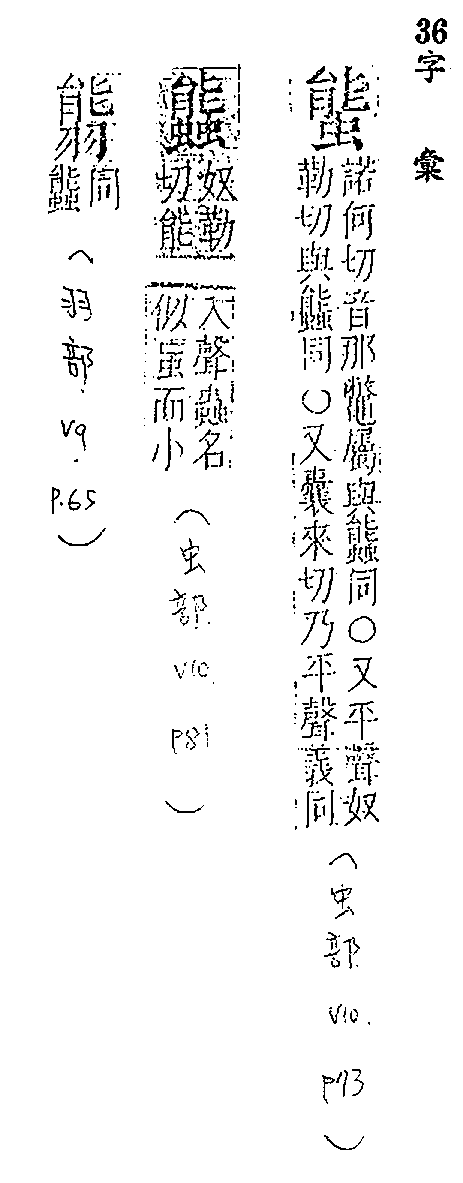 36字彙
諾何切音那鼈屬與同○又平聲奴
勒切與同○又囊來切乃平聲義同
(虫部 V10. P73)
奴勒
切能
入聲蟲名
似䖟而小
(虫部 V10. P81)
同
(羽部. V9. P.65)